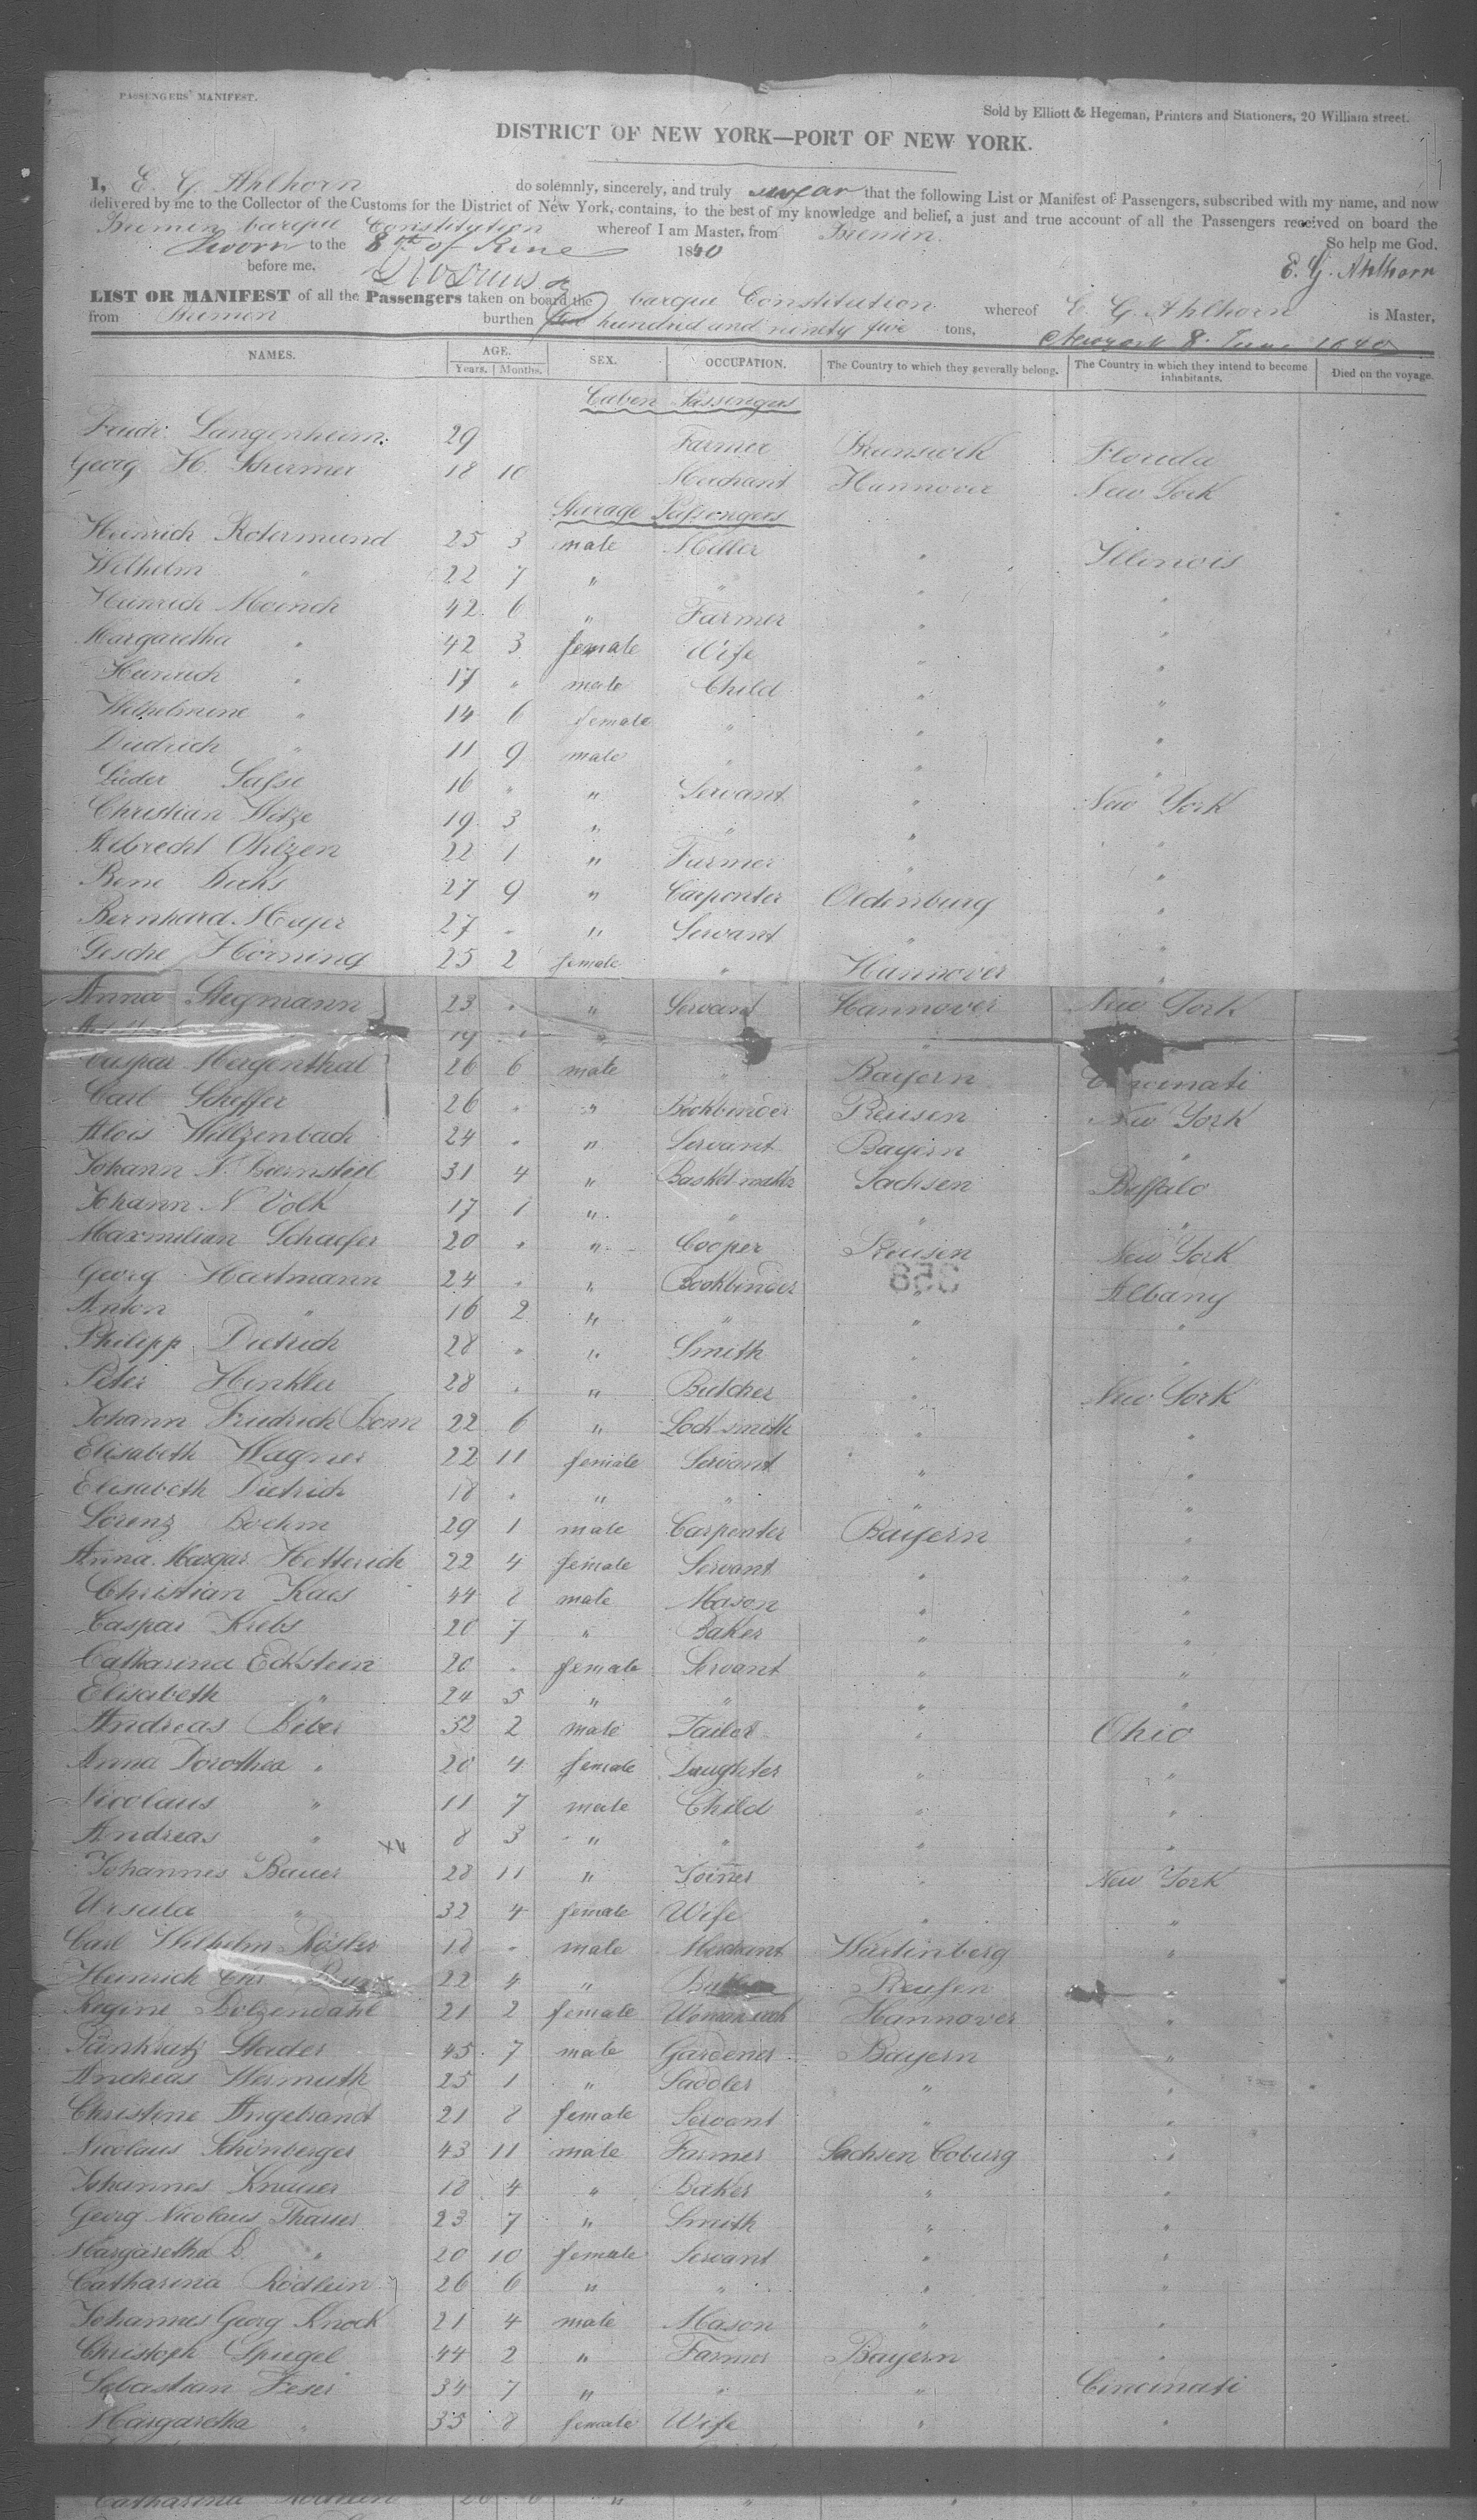 PASSENGERS' MANIFEST.
Sold by Elliott & Hegeman, Printers and Stationers, 20 William street.
DISTRICT OF NEW YORK—PORT OF NEW YORK.
I, E. G. Ahlhorn do solemnly, sincerely, and truly swear that the following List or Manifest of Passengers, subscribed with my name, and now
delivered by me to the Collector of the Customs for the District of New York, contains, to the best of my knowledge and belief, a just and true account of all the Passengers received on board the
Bremen barque Constitution whereof I am Master, from Bremen.
Sworn to the 8th of June 1840 So help me God.
before me, E. G. Ahlhorn
LIST OR MANIFEST of all the Passengers taken on board the barque Constitution whereof E. G. Ahlhorn is Master,
from Bremen burthen hundred and ninety five tons, Newyork 8. June 1840
NAMES. AGE. Years. Months. SEX. OCCUPATION. The Country to which they severally belong. The Country in which they intend to become inhabitants. Died on the voyage.
Caben Passengers
Friedr. Langenheim 29 Farmer Brunswik Florida
Georg H. Schirmer 18 10 Merchant Hannover New York
Stearage Passengers
Heinrich Rotermund 25 3 male Miller " Illinois
Wilhelm " 22 7 " " " "
Heinrich Moench 42 6 " Farmer " "
Margaretha " 42 3 female Wife " "
Heinrich " 17 " male Child " "
Wilhelmine " 14 6 female " " "
Diedrich " 11 9 male " " "
Lüder Saſse 16 " " Servant " New York
Christian 19 3 " " " "
Albrecht Ohlzen 22 1 " Farmer " "
Dirks 27 9 " Carpenter Oldenburg "
Bernhard Meyer 27 " " Servant " "
Gesche Hörning 25 2 female " Hannover "
Anna Stegmann 23 " " Servant Hannover New York
19 " " "
Caspar Mergenthal 26 6 male " Bayern Cincinati
Carl Scheffer 26 " " Bookbinder Preusen New York
Alois Wiltzenbach 24 " " Servant Bayern "
Johann N. Biernstiel 31 4 " Basket maker Sachsen Buffalo
Johann N Volk 17 1 " " " "
Maxmilian Schaefer 20 " " Cooper Preusen New York
Georg Hartmann 24 " " Bookbinder " Albany
Anton " 16 2 " " " "
Philipp Dietrich 28 " " Smith " "
Peter Henkler 28 " " Butcher " New York
Johann Friedrich Bonn 22 6 " Lock smith " "
Elisabeth Wagner 22 11 female Servant " "
Elisabeth Dietrich 18 " " " " "
Lorenz Boehm 29 1 male Carpenter Bayern "
Anna Margar Hetterich 22 4 female Servant " "
Christian Kaes 44 8 male Mason " "
Caspar Krebs 20 7 " Baker " "
Catharina Eckstein 20 " female Servant " "
Elisabeth " 24 5 " " " "
Andreas Biber 52 2 male Tailor " Ohio
Anna Dorothea " 20 4 female Daughter " "
Nicolaus " 11 7 male Child " "
Andreas " 8 3 " " " "
Johannes Bauer 28 11 " Joiner " New York
Ursula " 32 4 female Wife " "
Carl Wilhelm Rösler 18 " male Merchant Wurtinberg "
Heinrich Chr 22 4 " Preuſen "
Regine Bolzendahl 21 2 female Hannover "
Pankratz Stader 45 7 male Gardener Bayern "
Andreas Wermuth 25 1 " Saddler " "
Christine Angebrandt 21 8 female Servant " "
Nicolaus Schönberger 43 11 male Farmer Sachsen Coburg "
Johannes Knauer 18 4 " Baker " "
Georg Nicolaus Thauer 23 7 " Smith " "
Margaretha D. " 20 10 female Servant " "
Catharina Rödlein 26 6 " " " "
Johannes Georg Knock 21 4 male Mason " "
Christoph Spiegel 44 2 " Farmer Bayern "
Sebastian Feser 34 7 " " " Cincinati
Margaretha " 35 8 female Wife " "
Catharina Rödlein